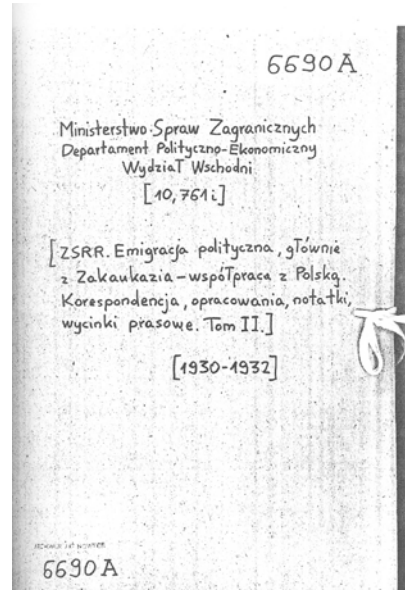 6690 A
Ministerstwo Spraw Zagranicznych
Departament Polityczno-Ekonomiczny
Wydział Wschodni
[10,761 i]
[ZSRR. Emigracja polityczna, głównie
z Zakaukazia – współpraca z Polską.
Korespondencja, opracowania, notatki,
wycinki prasowe. Tom II.]
[1930-1932]
6690 A